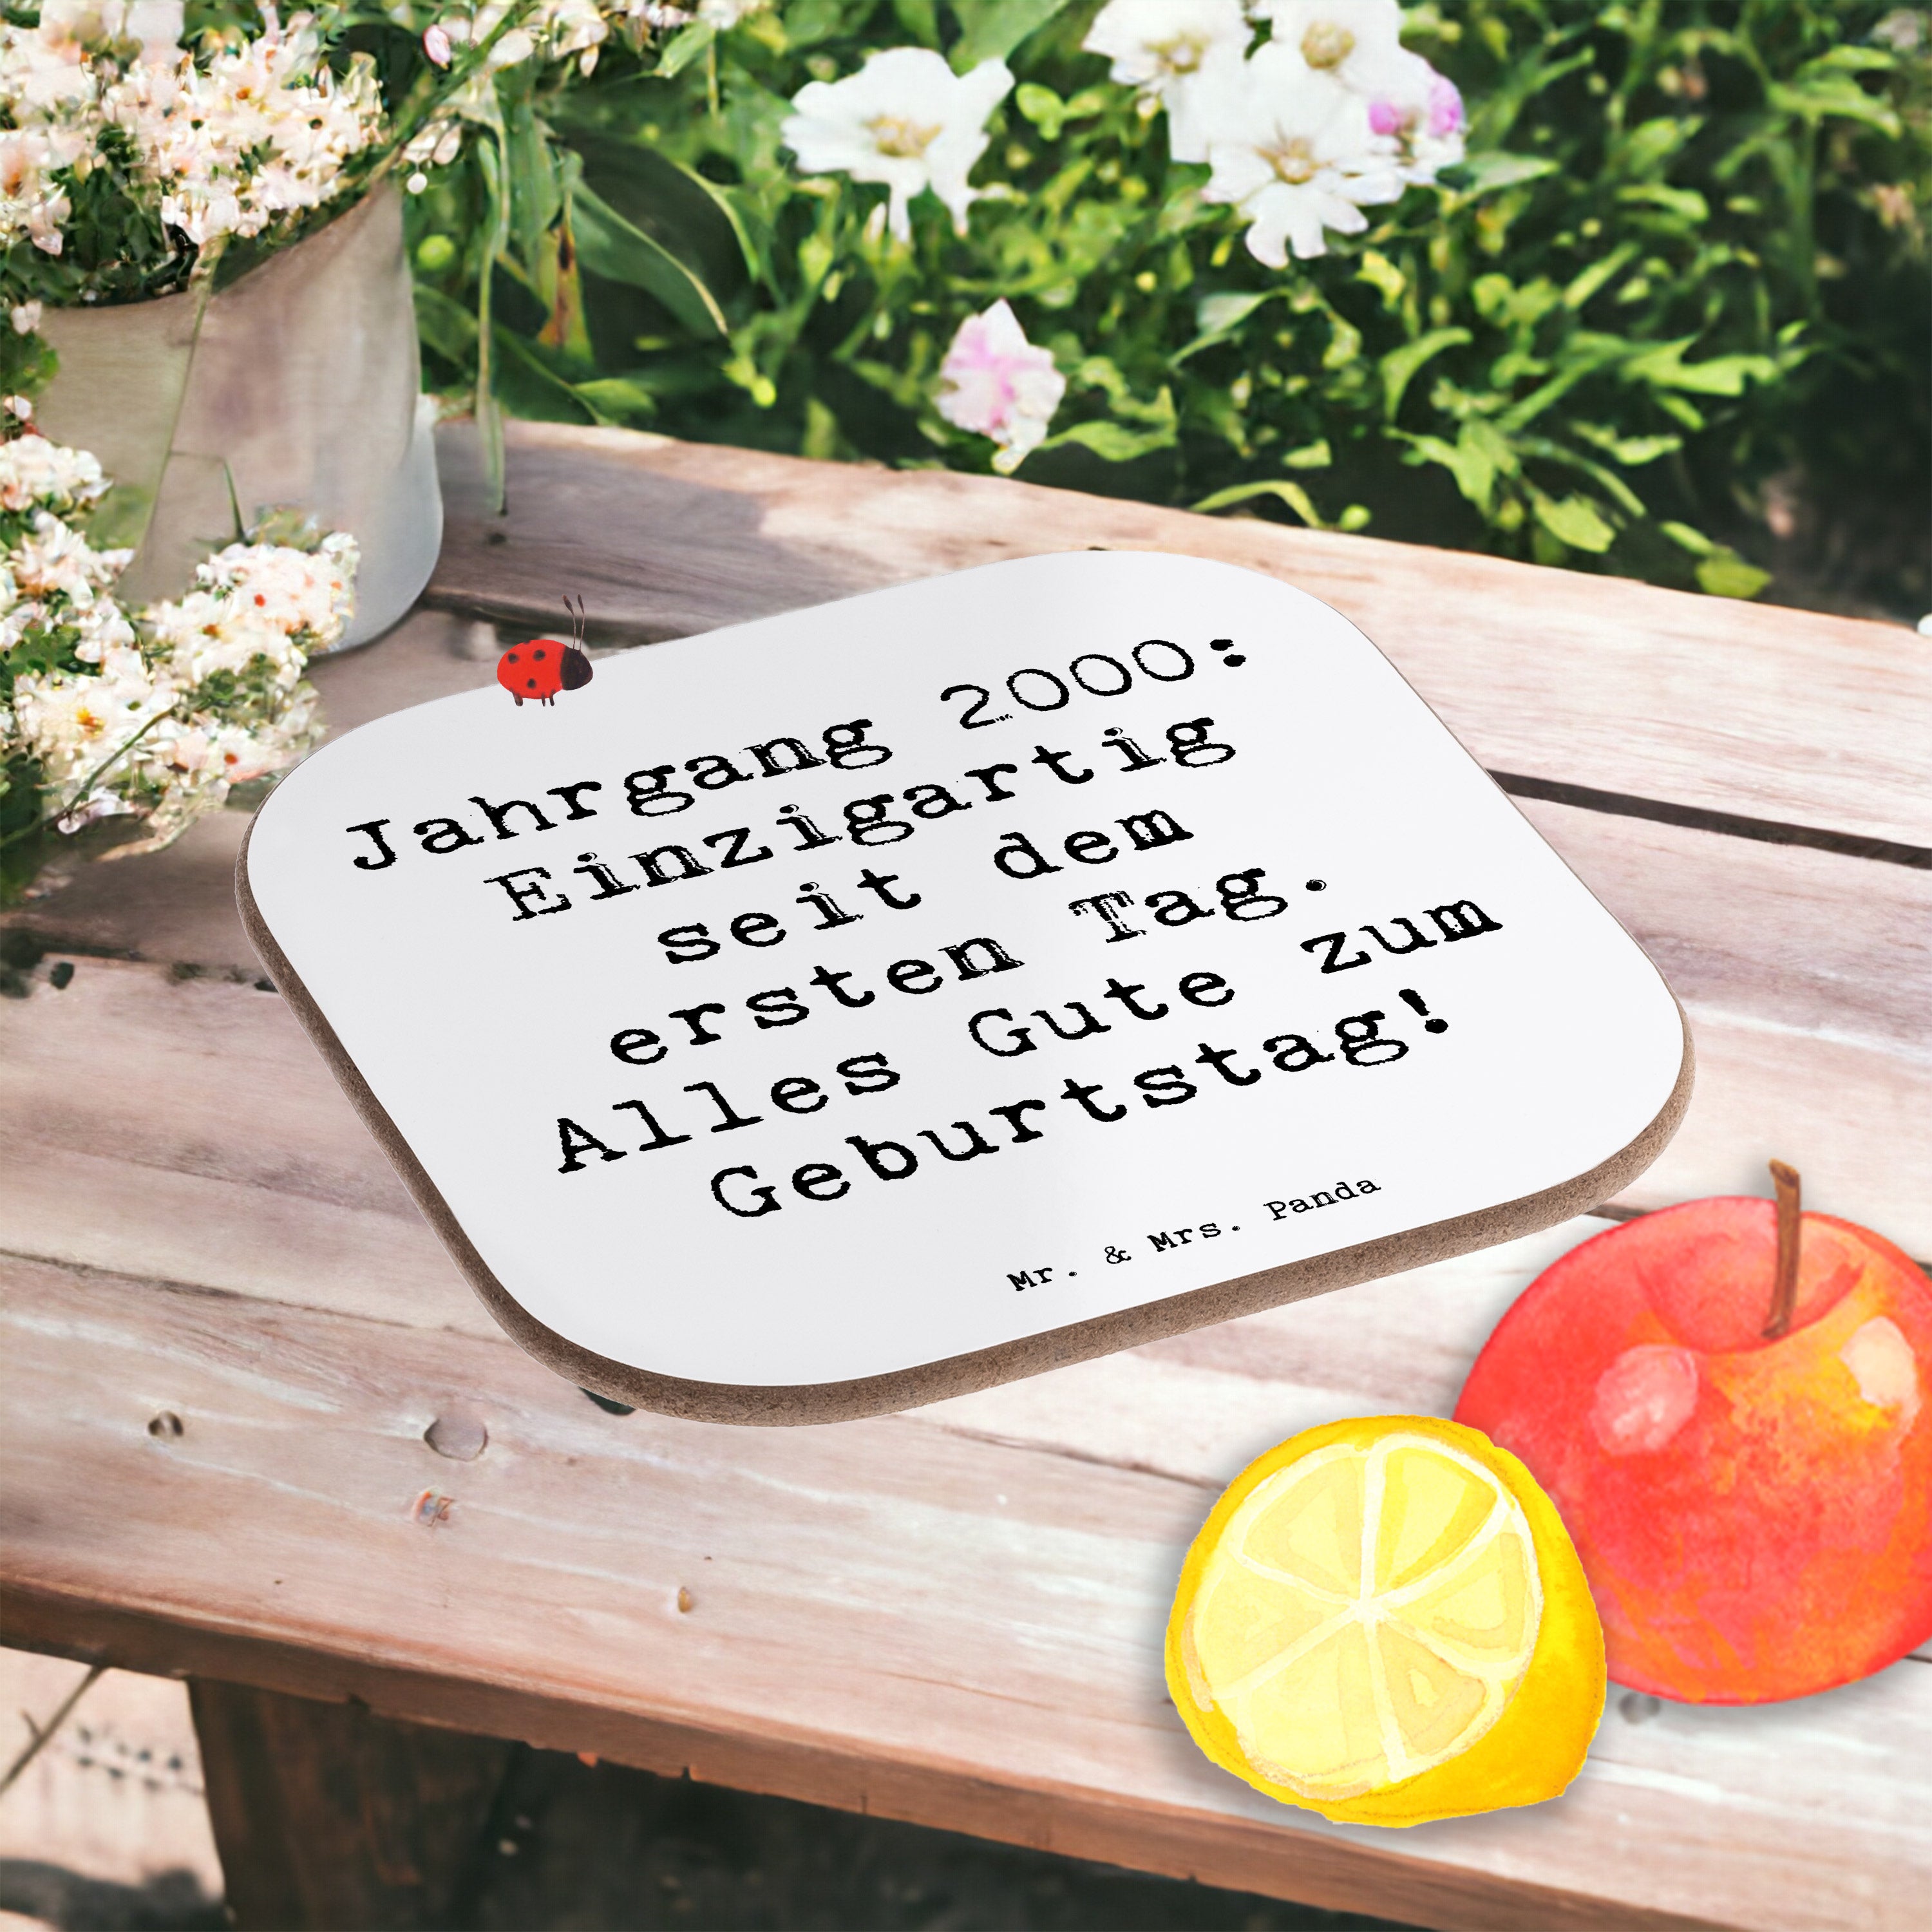 Jahrgang 2000:
Einzigartig
seit dem
ersten Tag.
Alles Gute zum
Geburtstag!
Mr. & Mrs. Panda